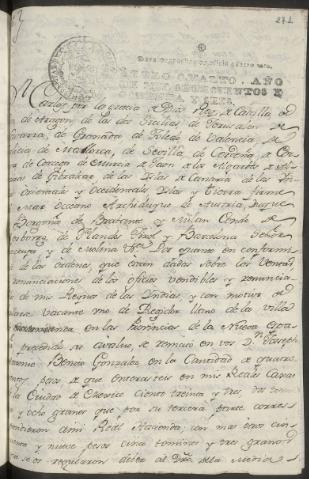 271
SELLO QUARTO, AÑO
DE MIL SETECIENTOS E
Carlos por la gracia de Dios Rey de Castilla de
de Aragon de las dos Sicilias de Jerusalen de
Navarra, de Granada de Toledo de Valencia de
Galicia de Mallorca, de Sevilla, de Cerdeña de Cor
de Corcega de Murcia de Jaen de los Algarbes de Al
de Gibraltar de las Islas de Canaria de las In
Orientales y Occidentales Islas y tierra firme
Mar Occeano Archiduque de Austria Duque
Borgoña de Brabante y Milan Conde de
de Flandes Tirol y Barcelona Señor
y de Molina &c. Por quanto en conform
de las ordenes, que estan dadas sobre las Ventas
renunciaciones de los oficios vendibles y renuncia
de mis Reynos de las Indias, y con motivo de
vacante uno de Regidor llano de la villa
en las Provincias de la Nueva España
y precedido su avaluo, se remató en vos Dn. Joseph
Benito Gonzalez en la Cantidad de quatro
pesos de que enterasteis en mis Reales Caxas
la Ciudad de Mexico ciento treinta y tres, dos tomi
y ocho granos que por su tercera parte corres
pondieron a mi Real Hacienda, con mas cinco
y nueve pesos cinco tomines y tres granos
se os regularon deber al Dro. de la Media